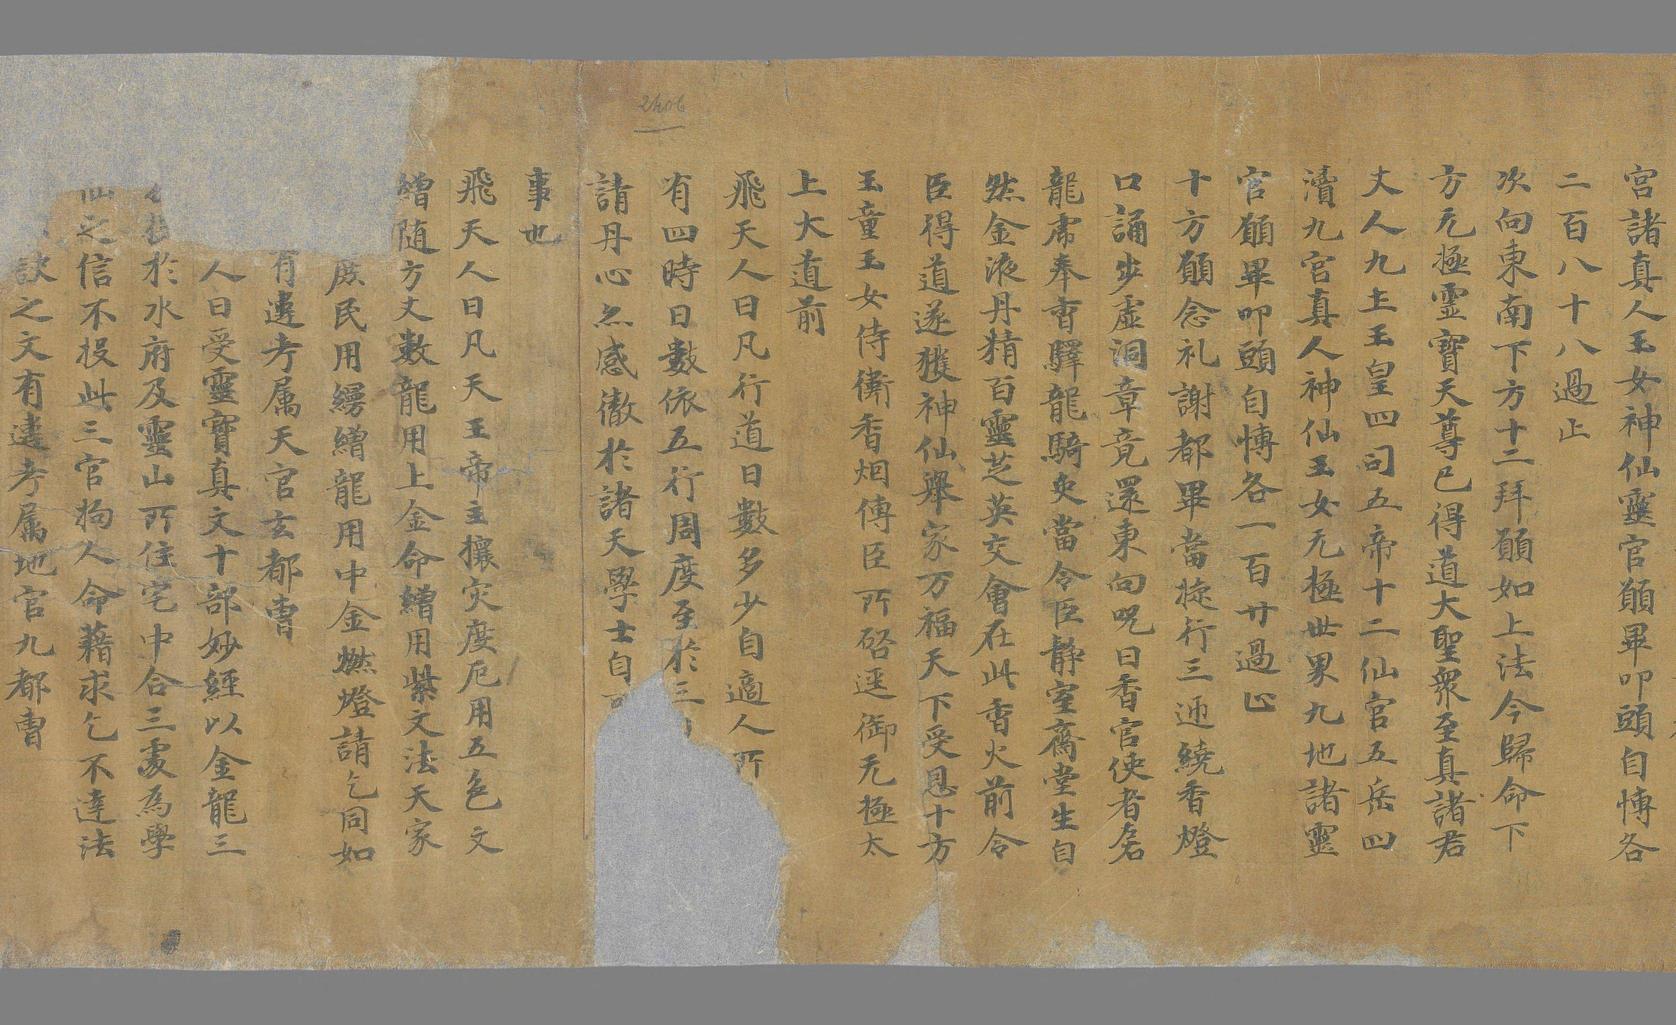 宮諸真人玉女神仙靈官願畢叩頭自愽各
二百八十八過止
次向東南下方十二拜願如上法今歸命下
方无極靈寶天尊已得道大聖衆至真諸君
丈人九土王皇四司五帝十二仙官五岳四
瀆九宮真人神仙玉女无極世界九地諸靈
官願畢叩頭自愽各一百廿過止
十方願念礼謝都畢當旋行三迊繞香燈
口誦步虛洞章竟還東向呪曰香官使者
龍虎奉書驛龍騎吏當令臣静室齋堂生自
然金液丹精百靈芝英交會在此香火前令
臣得道遂獲神仙舉家万福天下受恩十方
玉童玉女侍衛香烟傳臣所啓逕御无極太
上大道前
飛天人曰凡行道日數多少自適人所
有四時日數依五行周度至於三
請丹心炁感徹於諸天學士自
事也
飛天人曰凡天王帝主攘灾度厄用五色文
繒隨方丈數龍用上金命繒用紫文法天家
庶民用縵繒龍用中金燃燈請乞同如
有違考属天官玄都曹
人曰受靈寶真文十部妙經以金龍三
投於水府及靈山所住宅中合三處為學
仙之信不投此三官拘人命藉求乞不達法
訣之文有違考属地官九都曹
2406